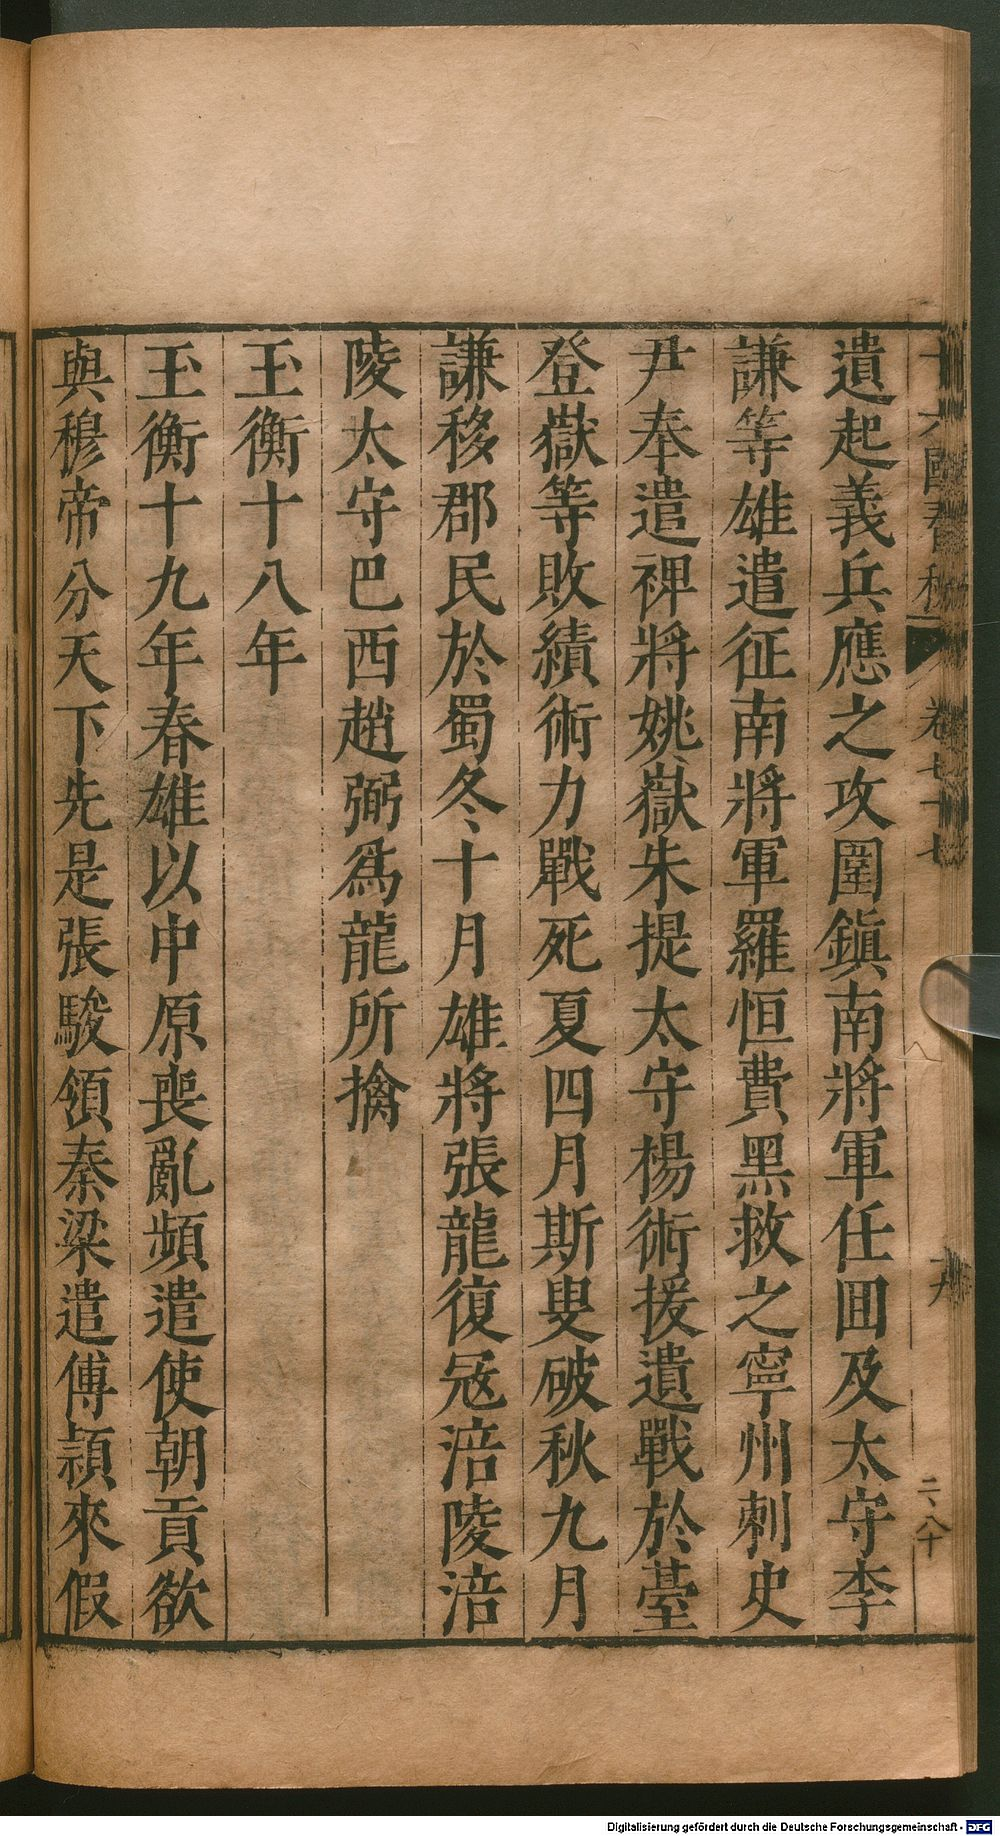 十六國春秋 卷七十七
遺起義兵應之攻圍鎮南將軍任回及太守李
謙等雄遣征南將軍羅恒費黑救之寧州刺史
尹奉遣裨將姚嶽朱提太守楊術援遺戰於䑓
登嶽等敗績術力戰死夏四月斯叟破秋九月
謙移郡民於蜀冬十月雄將張龍復冦涪陵涪
陵太守巴西趙弼爲龍所擒
玉衡十八年
玉衡十九年春雄以中原喪亂頻遣使朝貢欲
與穆帝分天下先是張駿領秦梁遣傅頴來假
二八十
Digitalisierung gefördert durch die Deutsche Forschungsgemeinschaft - DFG